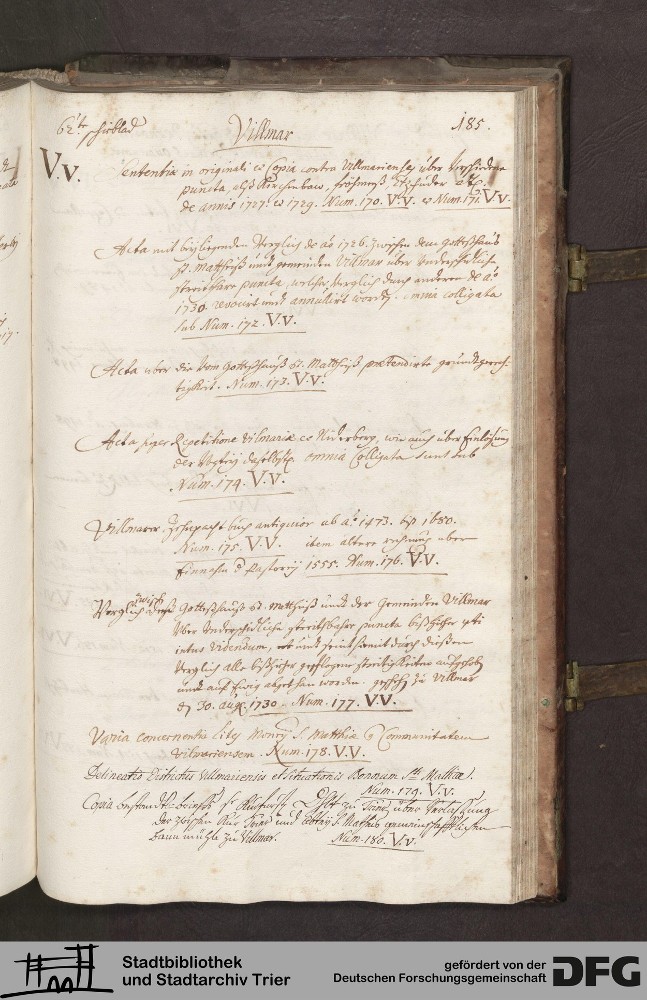 62te
Villmar
185.
V.v.
Sententiæ in originali et Copia contra Villmarienses über verschiedene
puncta, alß Kirchenbaw,
de annis 1727. et 1729. Num. 170. V.V. et Num. 171. V.V.
Acta mit beyligenden Verglich de aō 1726. zwischen dem Gotteßhaus
St. Mattheiß undt gemeinden Villmar über underschidliche
streitbare puncta, welcher Verglich durch anderen de aō
1730. revocirt undt annullirt worden. omnia colligata
sub Num. 172. V.V.
Acta uber die vom Gotteßhauß St. Mattheiß prætendirte grundtgerech-
tigkeit. Num. 173. V.V.
Acta super Repetitione Vilmariæ et Niderberg, wie auch über Einlößung
der Vogtey daselbst. omnia Colligata sunt sub
Num. 174. V.V.
Villmarer Zehnpacht buch antiquior ab aō 1473. biß 1680.
Num. 175. V.V. item altere rechnung uber
Einnahm d. Pastorey 1555. Num. 176. V.V.
zwisch
Verglich deß Gotteßhauß St. Mattheiß undt der Gemeinden Villmar
über underschidliche streitbahre puncta bißhero uti
intus videndum, undt durch dießen
Verglich alle bißhero gepflogene streitigkeiten aufgehobt
undt auf Ewig abgethan worden. geschehen zu Villmar
den 30. aug. 1730. Num. 177. V.V.
Varia concernentia lites Monrij S. Matthiæ et Communitatem
Vilmariensem. Num. 178. V.V.
Delineatio Districtus Villmariensis et Situationis Bonnum Sti Mathiæ.
Num. 179. V.V.
Copia bestandts-brieffs Sr Churfürstl. zu Trier über Verlassung
der zwischen Chur Trier undt Abtey S. Mathias gemeinschafftlichen
bannmühle zu Villmar. Num. 180. V.V.
Stadtbibliothek
und Stadtarchiv Trier
gefördert von der
Deutschen Forschungsgemeinschaft
DFG